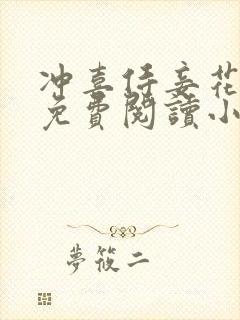 冲喜侍妾花
免費閱讀小
夢筱二